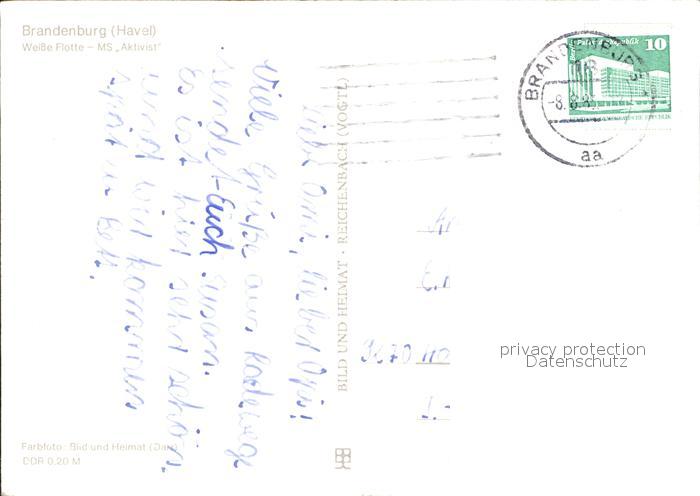 Brandenburg (Havel)
Weiße Flotte – MS „Aktivist"
Liebe Omi, lieber Opi!
Viele Grüße aus
sendet Euch Susann.
Es ist hier sehr schön
und wir kommen
spät in Bett.
BILD UND HEIMAT · REICHENBACH (VOGTL)
BRANDENBURG
-8.8.8
aa
Palast der Republik
10
DEUTSCHE DEMOKRATISCHE REPUBLIK
privacy protection
Datenschutz
Farbfoto: Bild und Heimat (Darr)
DDR 0,20 M